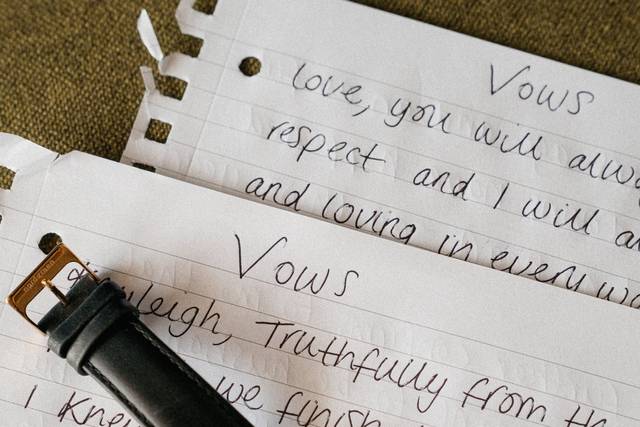 Vows
love, you will alwa
respect and I will a
and loving in every wa
Vows
leigh, Truthfully from th
I knew we finish